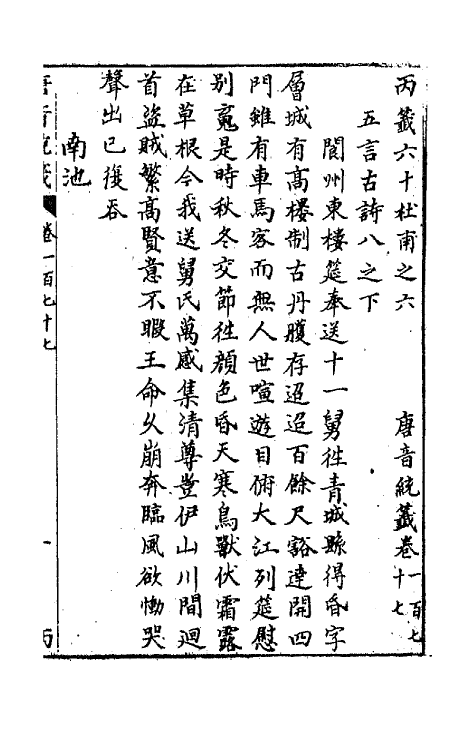 丙籤六十杜甫之六　唐音統籤卷一百七十七
五言古詩八之下
閬州東樓筵奉送十一舅徃青城縣得昏字
層城有高樓制古丹雘存迢迢百餘尺豁達開四
門雖有車馬客而無人世喧遊目俯大江列筵慰
别䰟是時秋冬交節徃顔色昏天寒鳥獸伏霜露
在草根今我送舅氏萬感集清尊豈伊山川間迴
首盗賊繁高賢意不暇王命乆崩奔臨風欲慟哭
聲出已復吞
南池
唐音統籤
卷一百七十七
一
丙